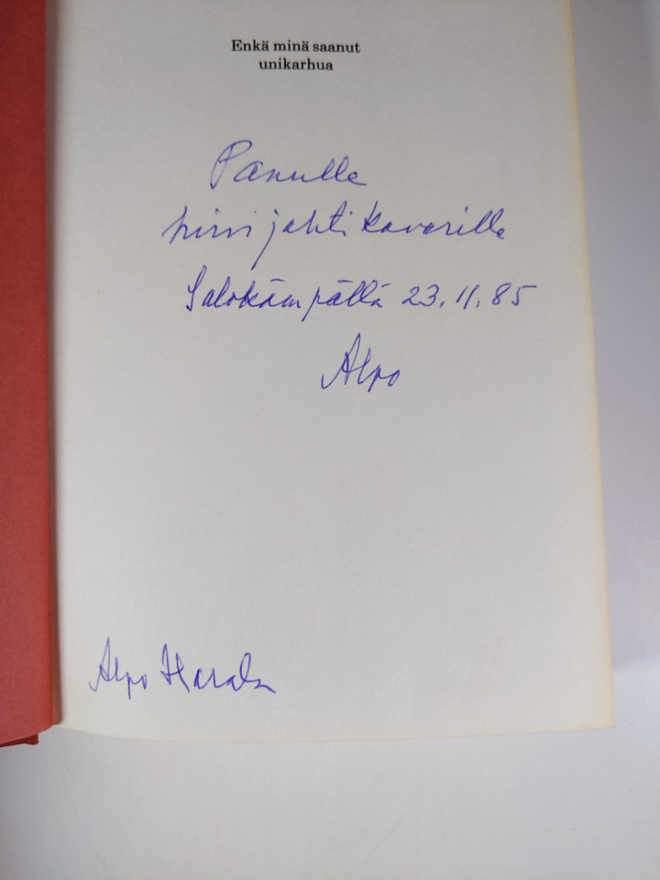 Enkä minä saanut
unikarhua
Panulle
hirvijahtikaverille
Salokämpällä 23.11.85
Alpo
Alpo